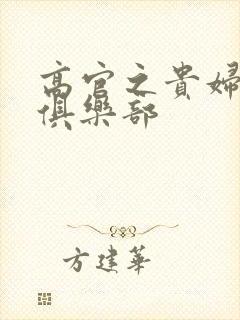 高官之貴婦
俱樂部
方建華